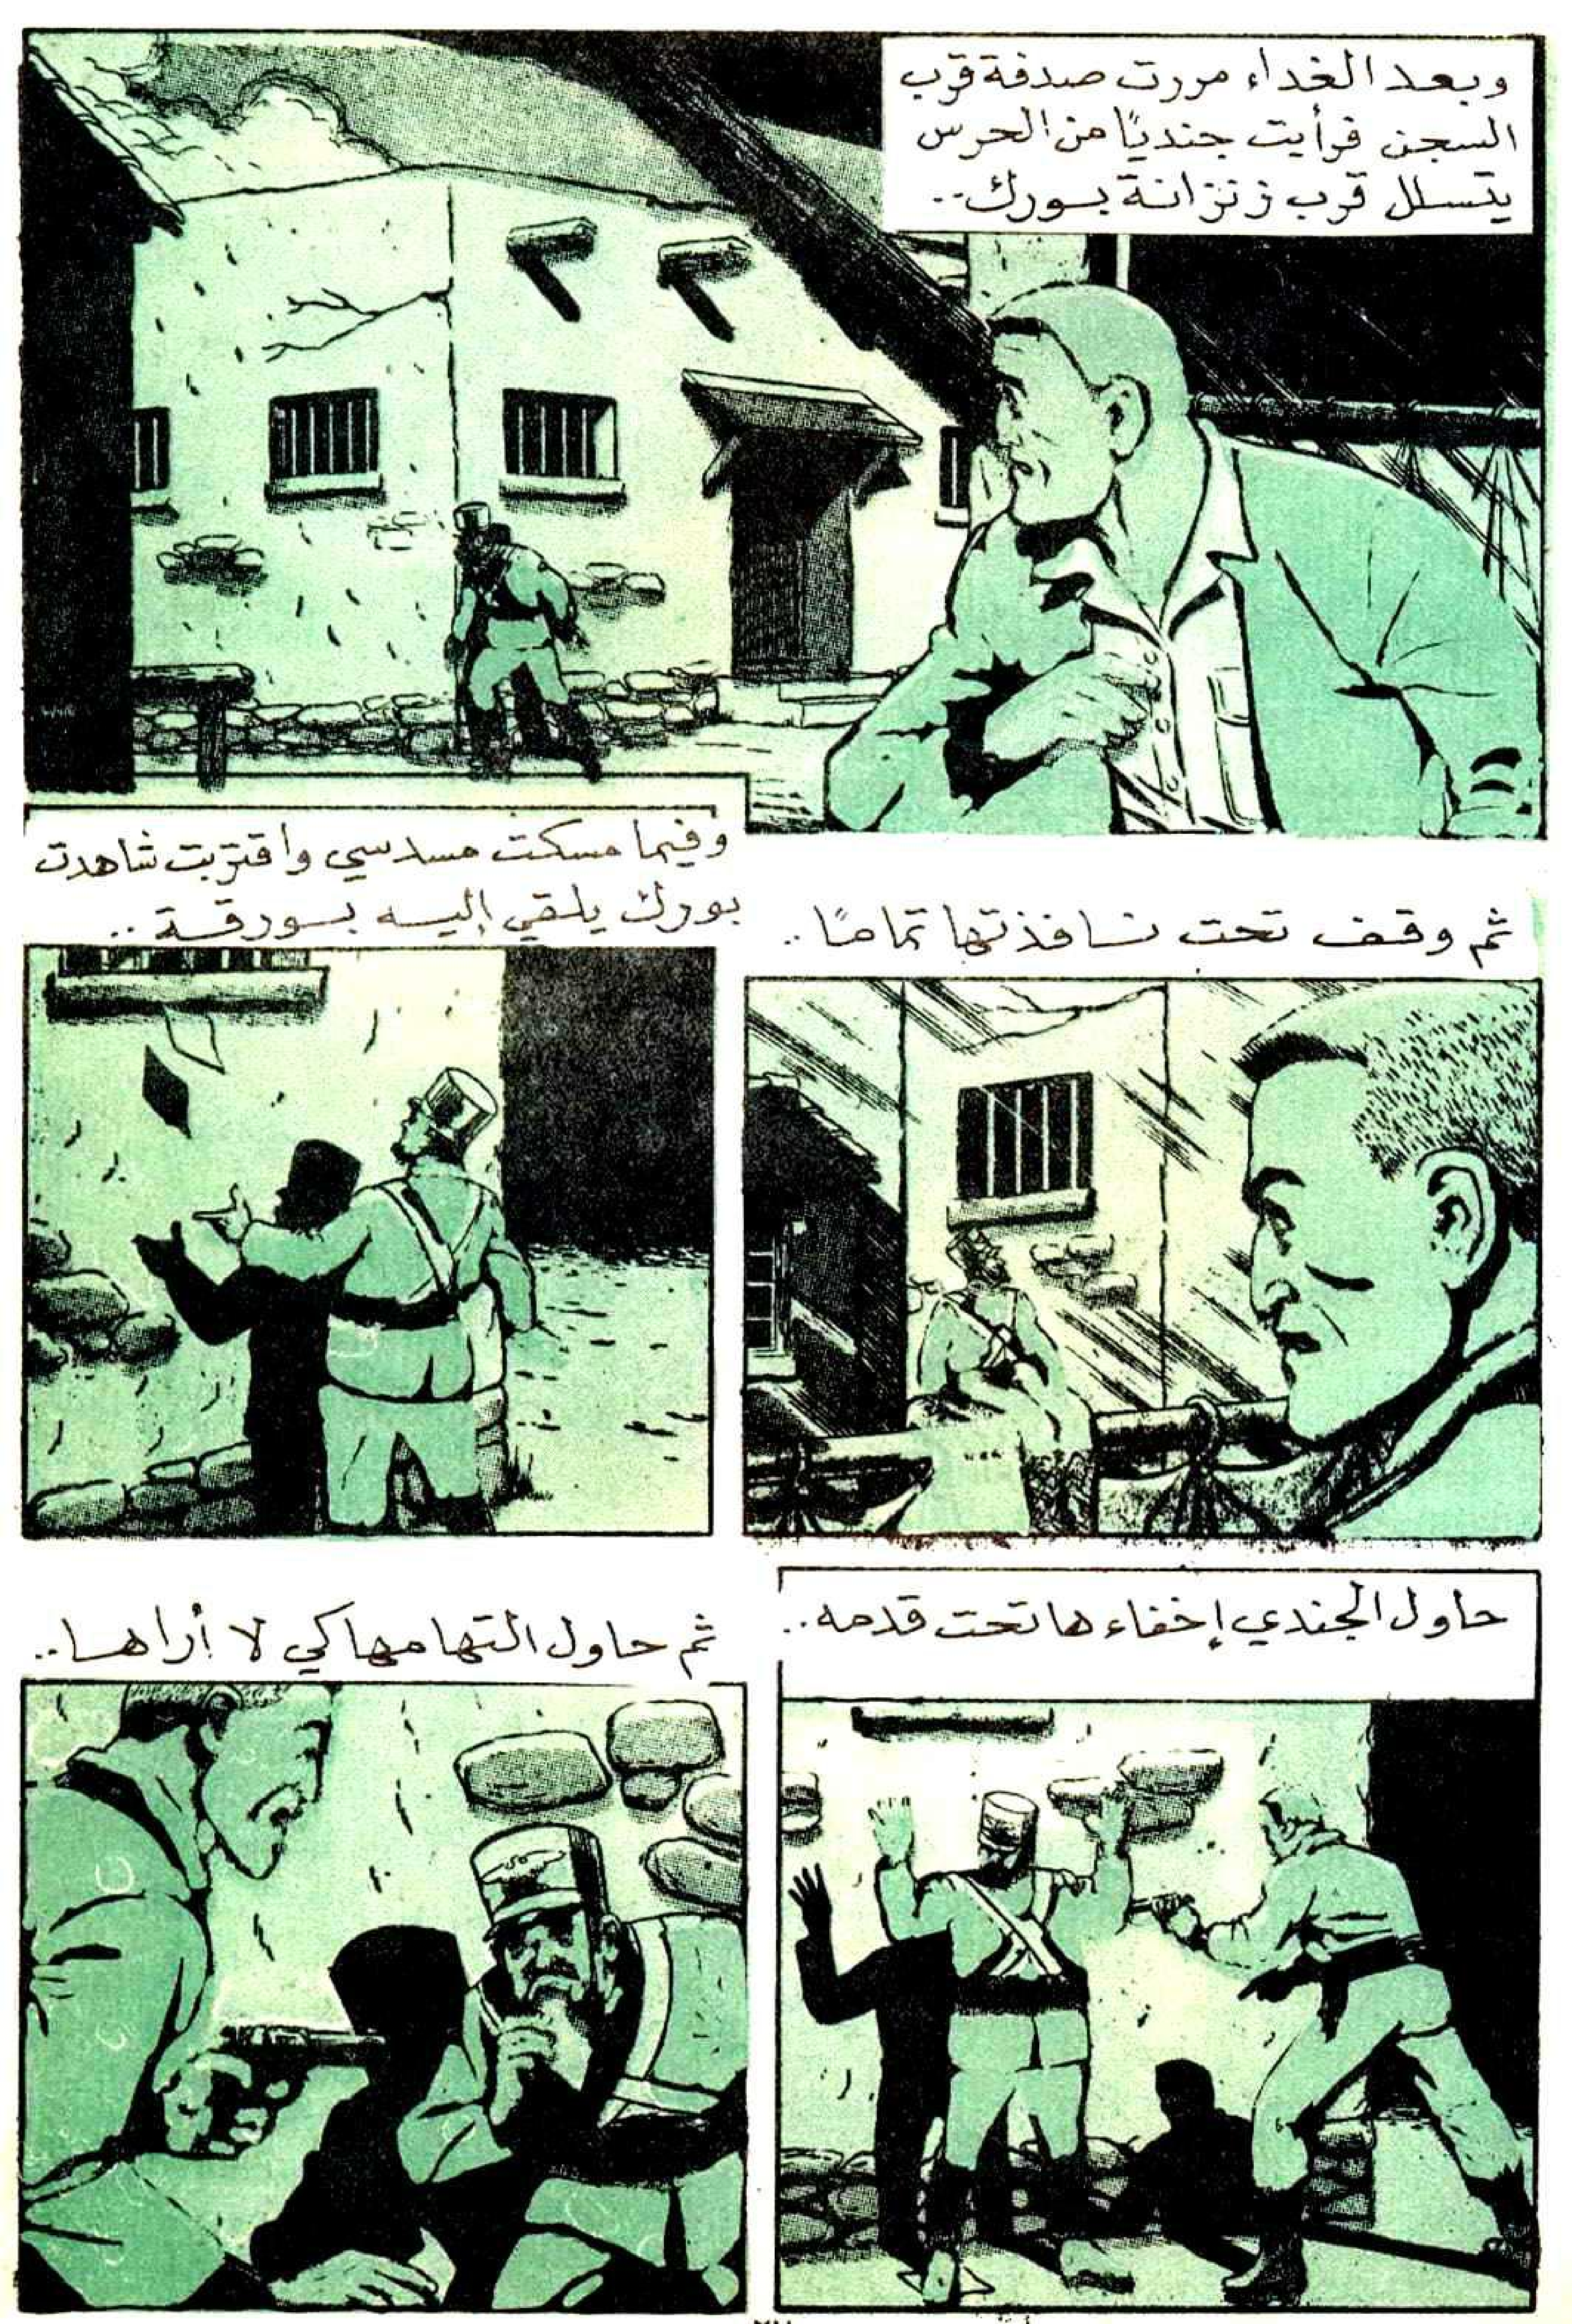 وبعد الغداء مررت صدفة قرب
السجن فرأيت جنديًا من الحرس
يتسلل قرب زنزانة بورك..
ثم وقف تحت نافذتها تمامًا..
وفيما مسكت مسدسي واقتربت شاهدت
بورك يلقي إليه بورقة..
حاول الجندي إخفاءها تحت قدمه..
ثم حاول التهامها كي لا أراها..